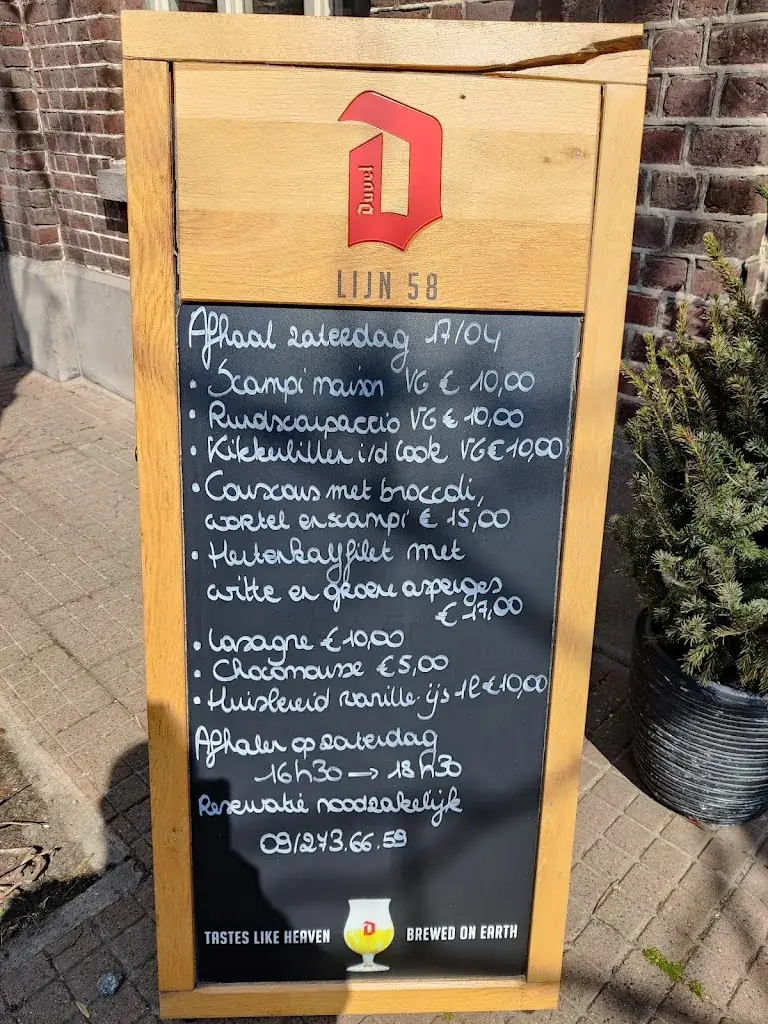 Duvel
LIJN 58
Afhaal zaterdag 17/04
• Scampi maison VG € 10,00
• Rundscarpaccio VG € 10,00
• Kikkerbillen i/d look VG € 10,00
• Couscous met broccoli,
wortel en scampi € 15,00
• Hertenkalffilet met
witte en groene asperges
€ 17,00
• Lasagne € 10,00
• Chocomousse € 5,00
• Huisbereid vanille-ijs 1l € 10,00
Afhalen op zaterdag
16h30 → 18h30
Reservatie noodzakelijk
09/273.66.59
TASTES LIKE HEAVEN BREWED ON EARTH